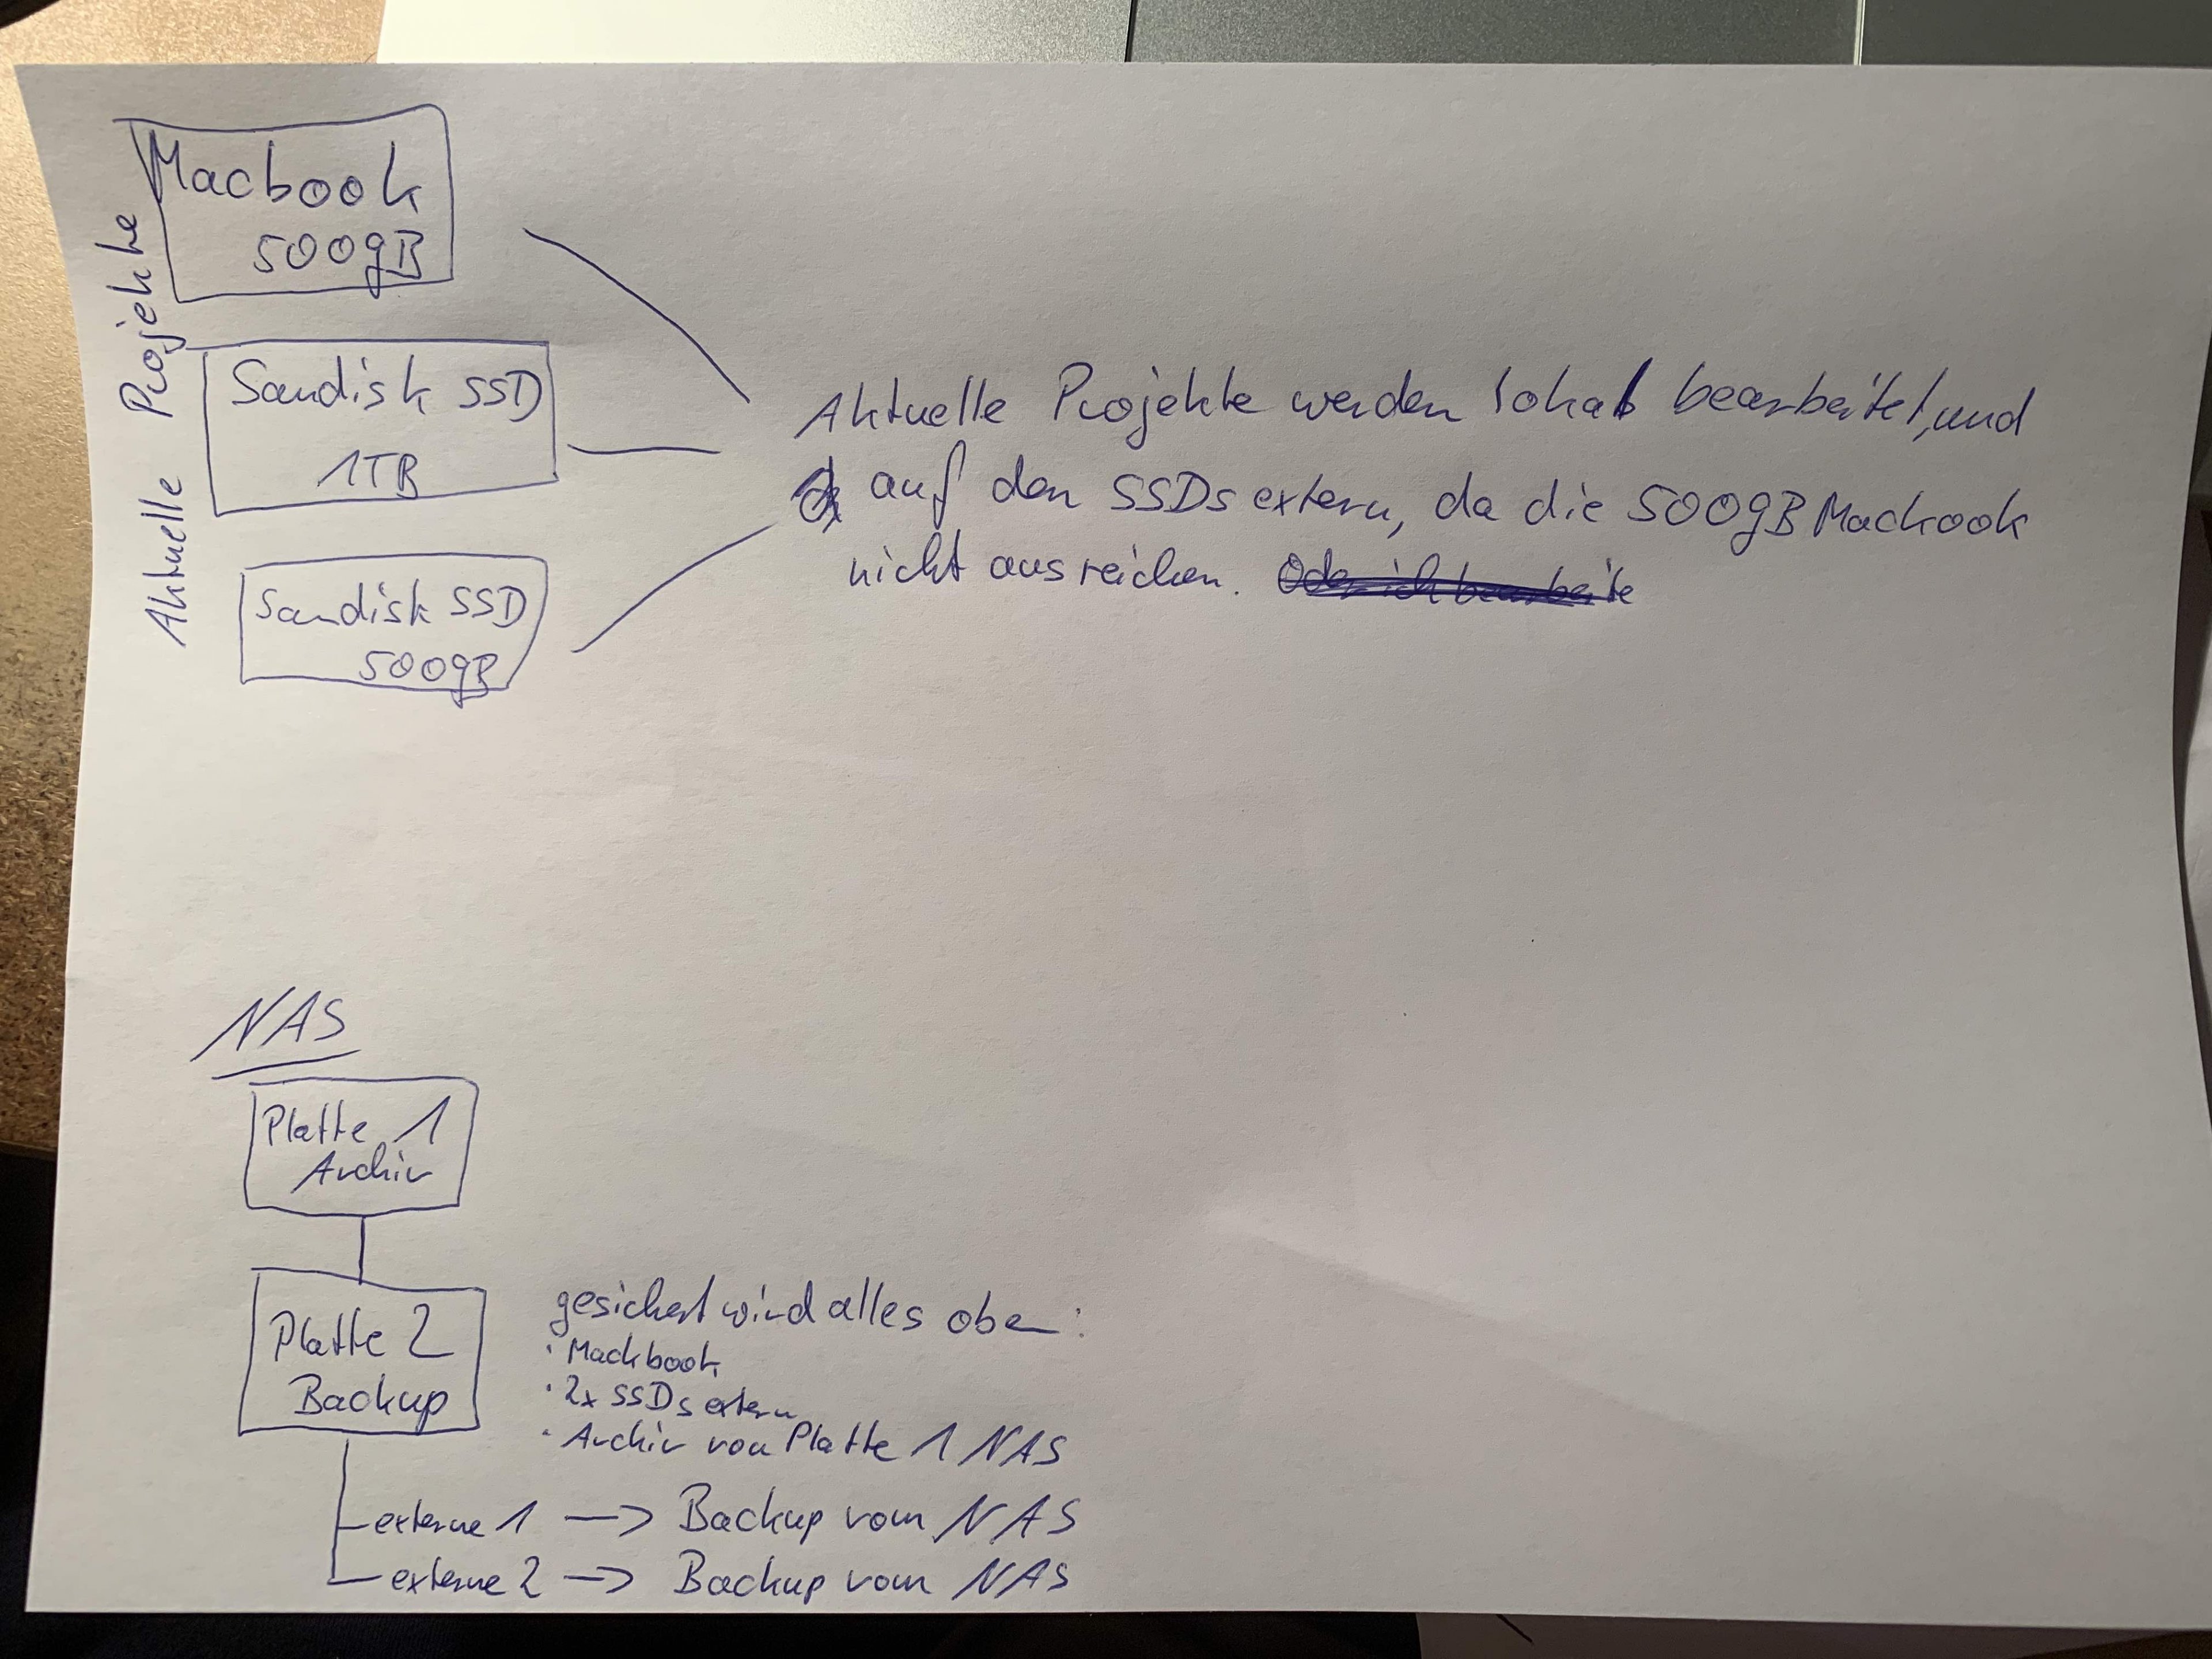 Macbook
500gB
Aktuelle Projekte
Sandisk SSD
1TB
Sandisk SSD
500gB
Aktuelle Projekte werden lokal bearbeitet, und
auf den SSDs extern, da die 500gB Mackook
nicht ausreichen. Oder ich bearbeite
NAS
Platte 1
Archiv
Platte 2
Backup
gesichert wird alles oben:
· Mackbook
· 2x SSDs extern
· Archiv von Platte 1 NAS
externe 1 —> Backup vom NAS
externe 2 —> Backup vom NAS